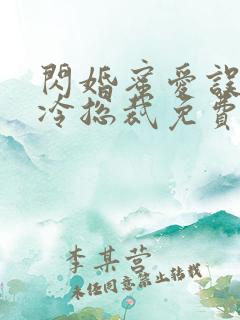 閃婚蜜愛誤
冷総裁免費
李某营
未经同意禁止转载